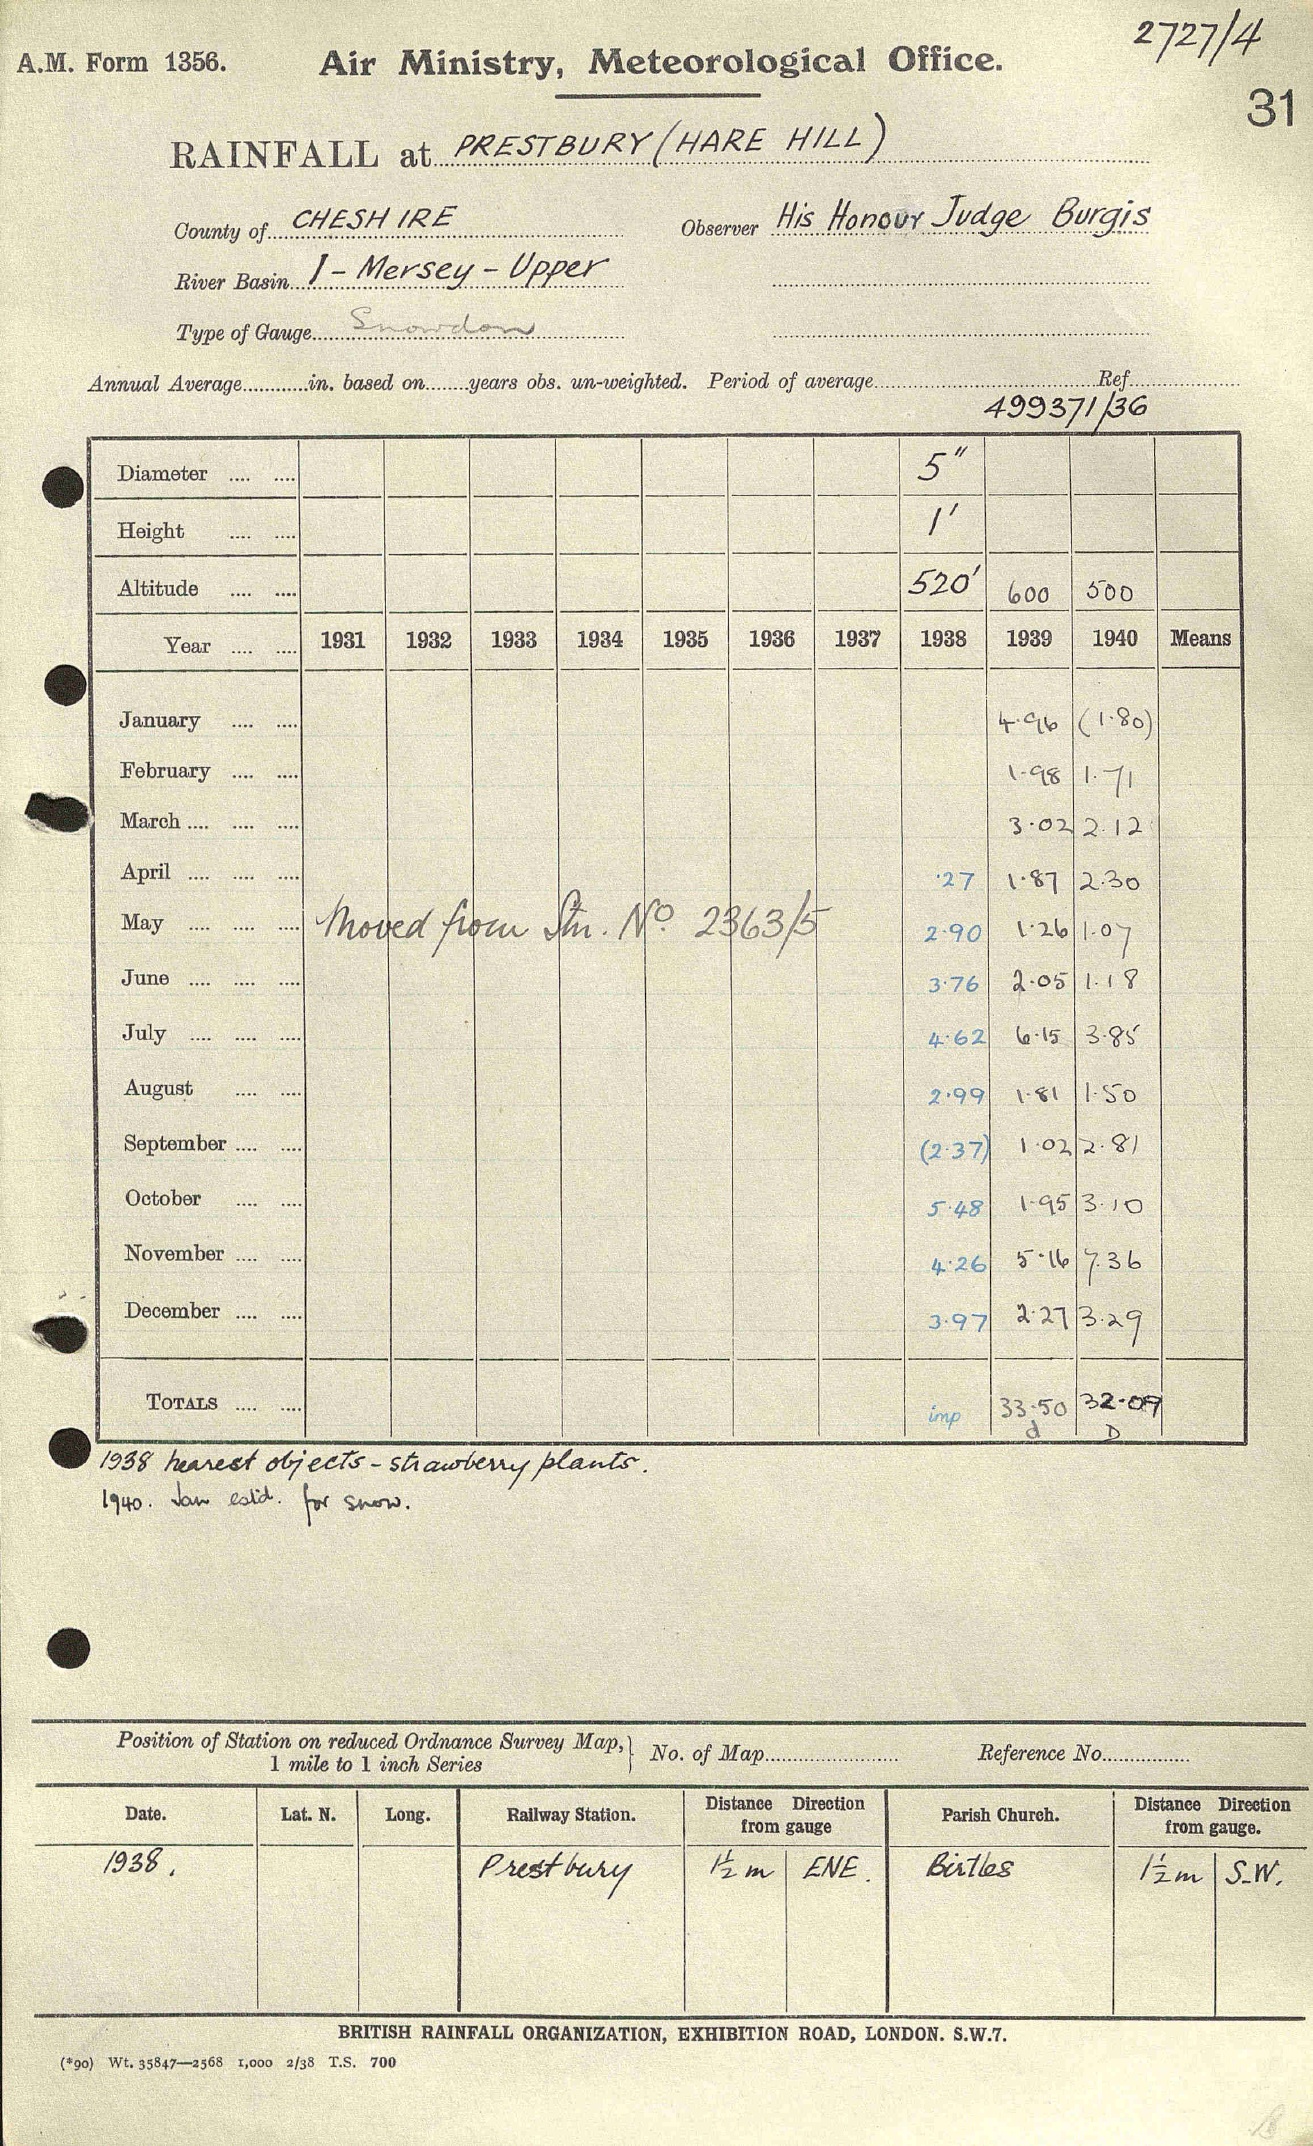 2727/4
A.M. Form 1356. Air Ministry, Meteorological Office.
31
RAINFALL at PRESTBURY (HARE HILL)
County of CHESHIRE Observer His Honour Judge Burgis
River Basin 1 - Mersey - Upper
Type of Gauge Snowdon
Annual Average............in. based on........years obs. un-weighted. Period of average............Ref............
499371/36
Diameter .... .... 5"
Height .... .... 1'
Altitude .... .... 520' 600 500
Year .... .... 1931 1932 1933 1934 1935 1936 1937 1938 1939 1940 Means
January .... .... 4.96 (1.80)
February .... .... 1.98 1.71
March .... .... .... 3.02 2.12
April .... .... .... .27 1.87 2.30
May .... .... .... Moved from Stn. No. 2363/5 2.90 1.26 1.07
June .... .... .... 3.76 2.05 1.18
July .... .... .... 4.62 6.15 3.85
August .... .... 2.99 1.81 1.50
September .... .... (2.37) 1.02 2.81
October .... .... 5.48 1.95 3.10
November .... .... 4.26 5.16 7.36
December .... .... 3.97 2.27 3.29
TOTALS .... .... imp 33.50 32.09
d D
1938 nearest objects - strawberry plants.
1940. Jan estd. for snow.
Position of Station on reduced Ordnance Survey Map, } No. of Map............ Reference No............
1 mile to 1 inch Series
Date. Lat. N. Long. Railway Station. Distance Direction from gauge Parish Church. Distance Direction from gauge.
1938. Prestbury 1½ m ENE. Birtles 1½ m S.W.
BRITISH RAINFALL ORGANIZATION, EXHIBITION ROAD, LONDON. S.W.7.
(*90) Wt. 35847—2568 1,000 2/38 T.S. 700